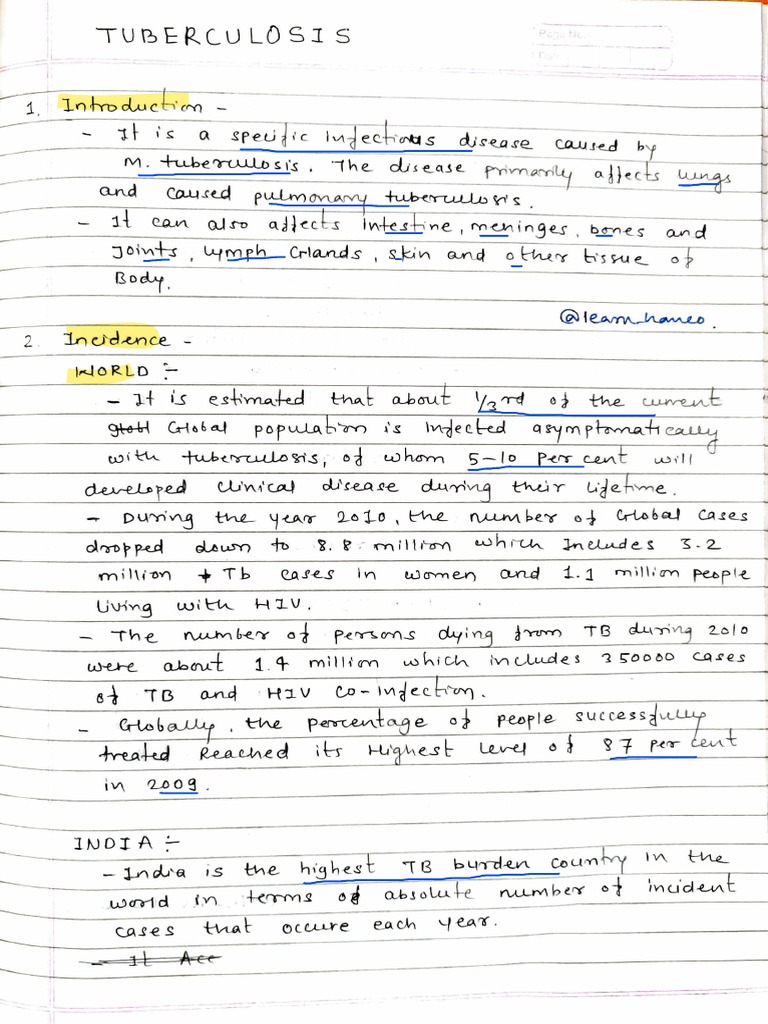 TUBERCULOSIS
Page No.
1. Introduction -
- It is a specific infectious disease caused by
M. tuberculosis. The disease primarily affects lungs
and caused pulmonary tuberculosis.
- It can also affects Intestine, meninges, bones and
Joints, lymph Glands, skin and other tissue of
Body.
@learn_homeo.
2. Incidence -
WORLD :-
- It is estimated that about 1/3rd of the current
Global population is infected asymptomatically
with tuberculosis, of whom 5-10 per cent will
developed clinical disease during their lifetime.
- During the year 2010, the number of Global cases
dropped down to 8.8 million which Includes 3.2
million Tb cases in women and 1.1 million people
living with HIV.
- The number of persons dying from TB during 2010
were about 1.4 million which includes 350000 cases
of TB and HIV Co-Infection.
- Globally, the percentage of people successfully
treated Reached its Highest Level of 87 per cent
in 2009.
INDIA :-
- India is the highest TB burden country in the
world in terms of absolute number of incident
cases that occure each year.
- It Acc